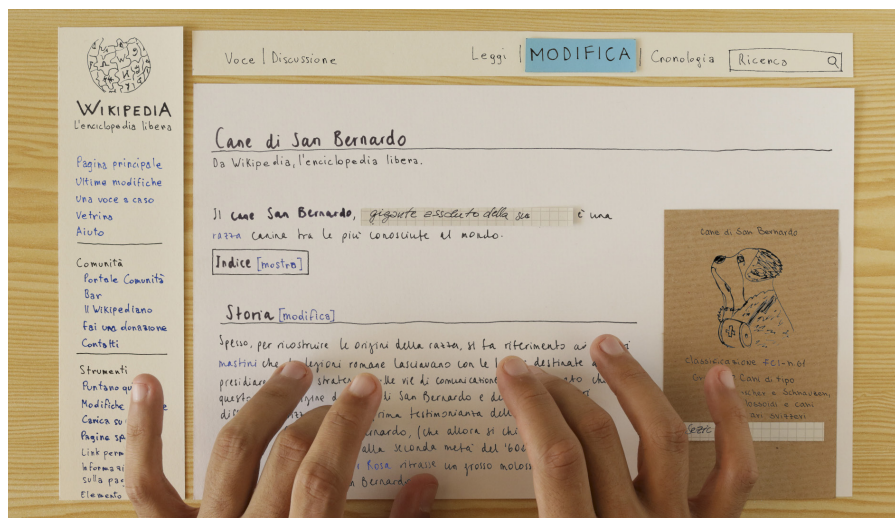 WIKIPEDIA
L'enciclopedia libera
Pagina principale
Ultime modifiche
Una voce a caso
Vetrina
Aiuto
Comunità
Portale Comunità
Bar
Il Wikipediano
Fai una donazione
Contatti
Strumenti
Puntano qu
Modifiche
Carica su
Pagine sp
Link perm
Informazi
sulla pag
Elemento
Voce | Discussione
Leggi | MODIFICA | Cronologia
Ricerca
Cane di San Bernardo
Da Wikipedia, l'enciclopedia libera.
Il cane San Bernardo, gigante assoluto della sua è una
razza canina tra le più conosciute al mondo.
Indice [mostra]
Storia [modifica]
Spesso, per ricostruire le origini della razza, si fa riferimento ai
mastini che legioni romane lasciavano con le destinate a
presidiare strate lle vie di comunicazione to che
questo gine d di San Bernardo e di
di rima testimonianza dell
rnardo, (che allora si chi
alla seconda metà del '600
Rosa ritrasse un grosso moloss
n Bernard
Cane di San Bernardo
Classificazione FCI-n.61
Cani di tipo
cher e Schnauzer,
lossoidi e cani
ari svizzeri
Sezze